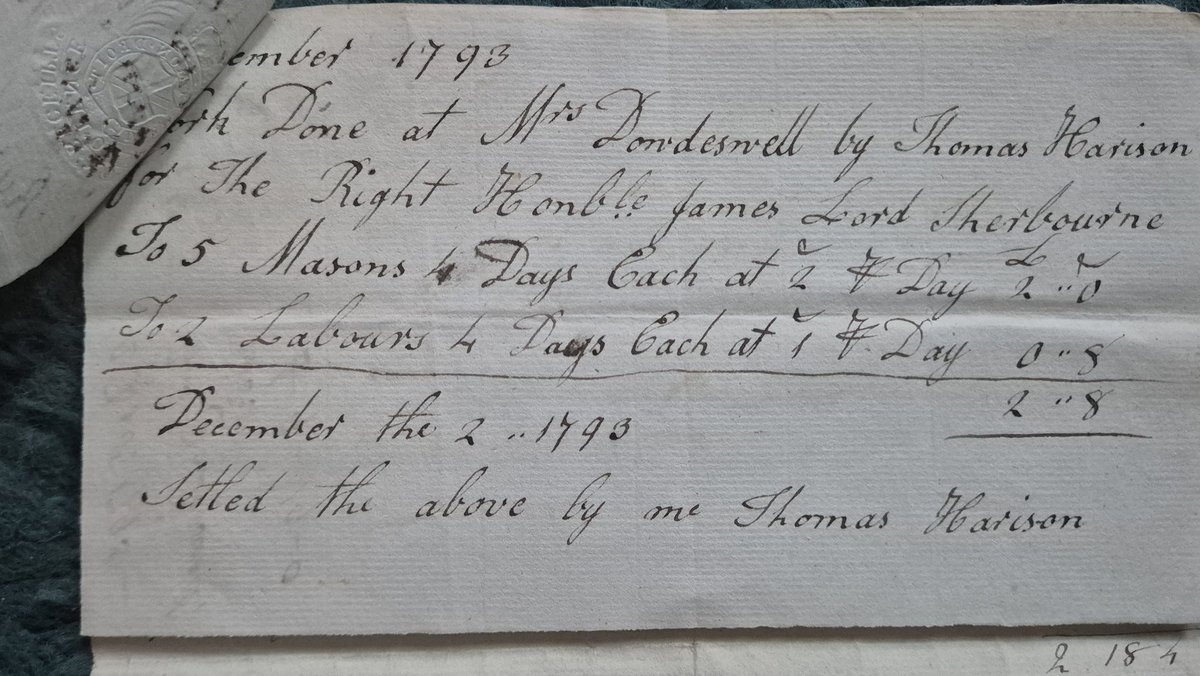 ember 1793
ork Done at Mrs Dowdeswell by Thomas Harison
for The Right Honble James Lord Sherbourne
To 5 Masons 4 Days Each at 2s ⅌ Day £2 ,, 0s
To 2 Labours 4 Days Each at 1s ⅌ Day 0 ,, 8
2 ,, 8
December the 2 ,, 1793
Setled the above by me Thomas Harison
2 18 4